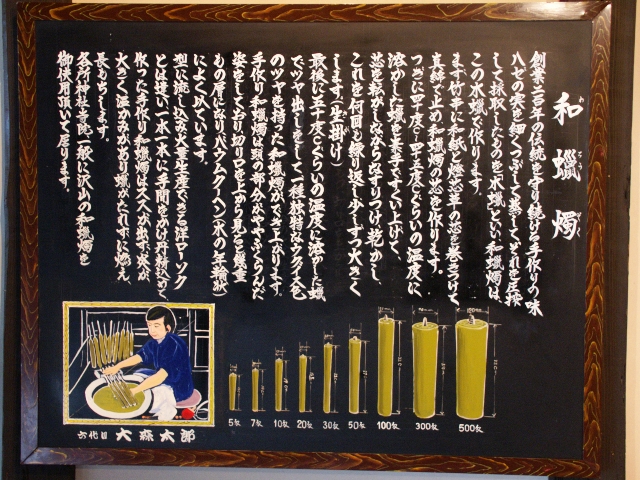 和蠟燭
創業二百年の伝統を守り続ける手作りの味
ハゼの実を細くつぶして蒸してそれを圧搾
して採取したものを木蠟といい和蠟燭は、
この木蠟で作ります。
ます竹串に和紙と燈芯草の芯を巻きつけて
真綿で止め和蠟燭の芯を作ります。
つぎに四十度C〜四十五度Cぐらいの温度に
溶かした蠟を素手ですくい上げて、
芯を転がしながらなすりつけ乾かし、
これを何回も繰り返し少しずつ大きく
します(生掛け)
最後に五十度Cぐらいの温度に溶かした蠟
でツヤ出しをして一種独特なウグイス色
のツヤを持った和蠟燭ができ上がります。
手作り和蠟燭は頭の部分がややふくらんだ
姿をしており切り口を上から見ると幾重
もの層になりバウムクーヘン(木の年輪状)
によくにています。
型に流し込み大量生産できる洋ローソク
とは違い一本一本に手間をかけ丹精込めて
作った手作り和蠟燭はススが出ず、炎が
大きく温かみがあり蠟がたれずに燃え、
長もちします。
各所神社寺院一般に沢山の和蠟燭を
御使用頂いて居ります。
六代目 大森太郎
5匁 7匁 10匁 20匁 30匁 50匁 100匁 300匁 500匁